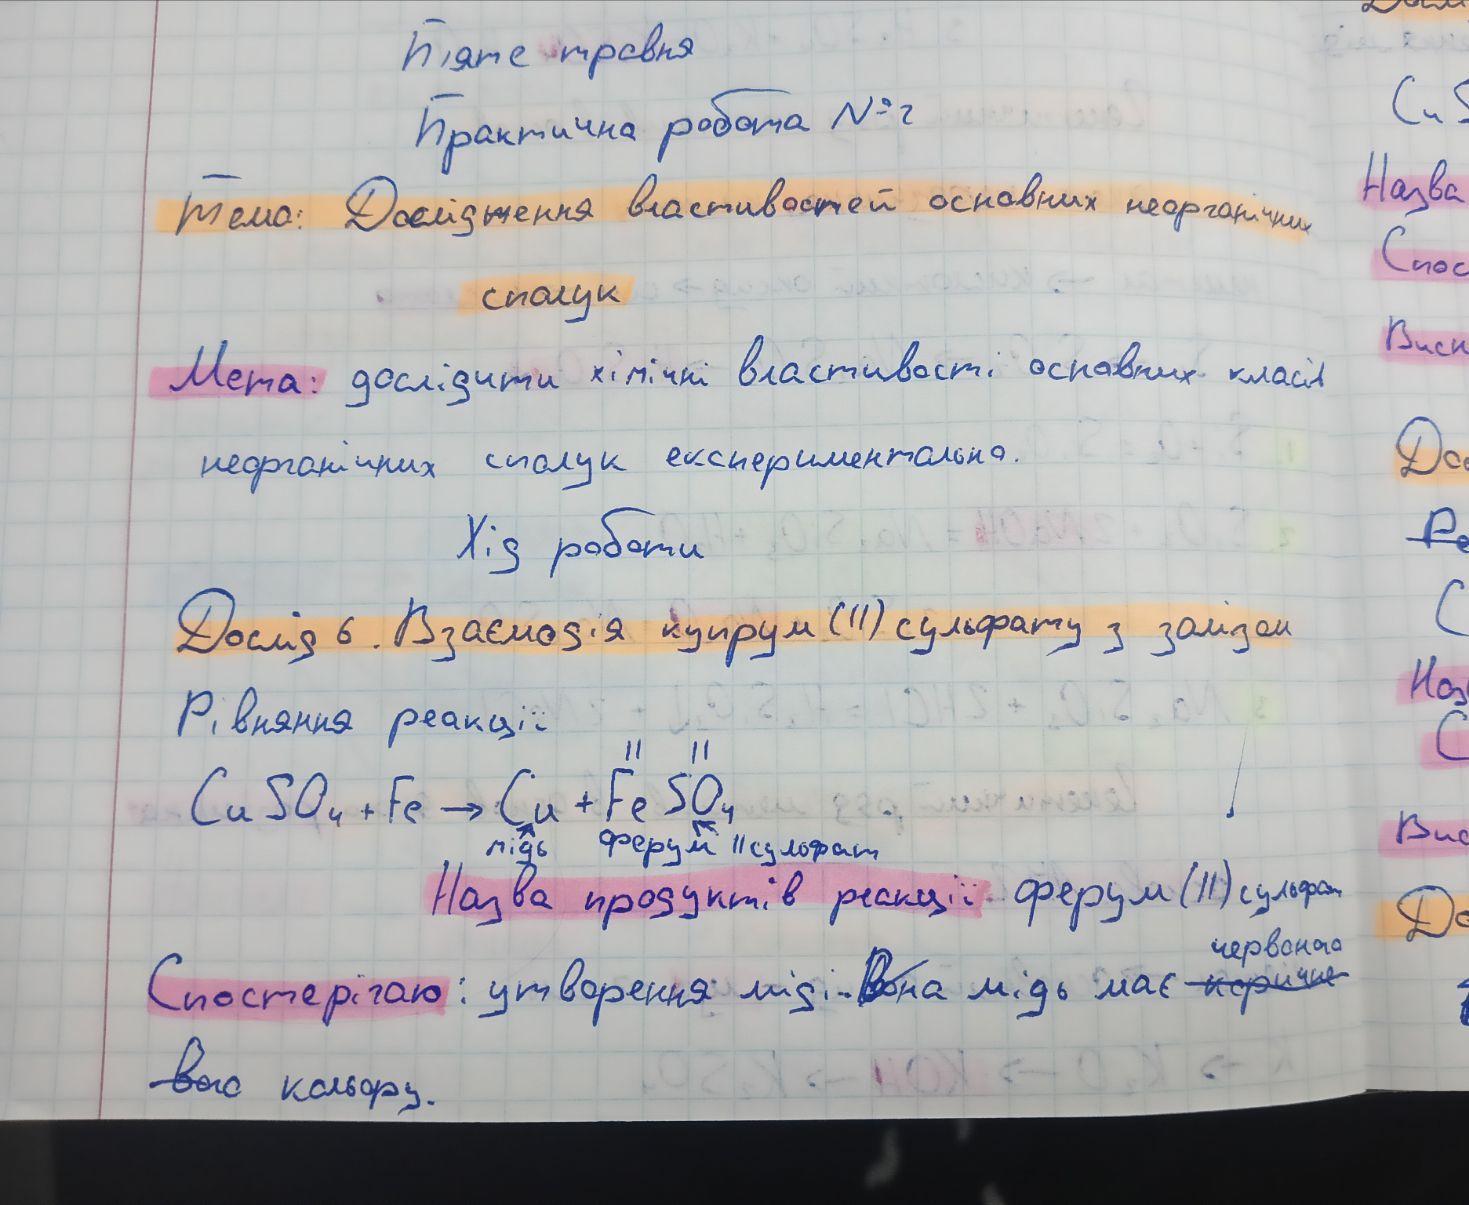 П'яте травня
Практична робота №2
Тема: Дослідження властивостей основних неорганічних
сполук
Мета: дослідити хімічні властивості основних класів
неорганічних сполук експериментально.
Хід роботи
Дослід 6. Взаємодія купрум (II) сульфату з залізом
Рівняння реакції
II II
CuSO₄ + Fe → Cu + FeSO₄
мідь ферум II сульфат
Назва продуктів реакції ферум (II) сульфат
червоного
Спостерігаю: утворення міді. Вона мідь має коричне
вого кольору.
CuS
Назва
Спос
Висн
Дос
Ре
С
Наз
С
Вис
До